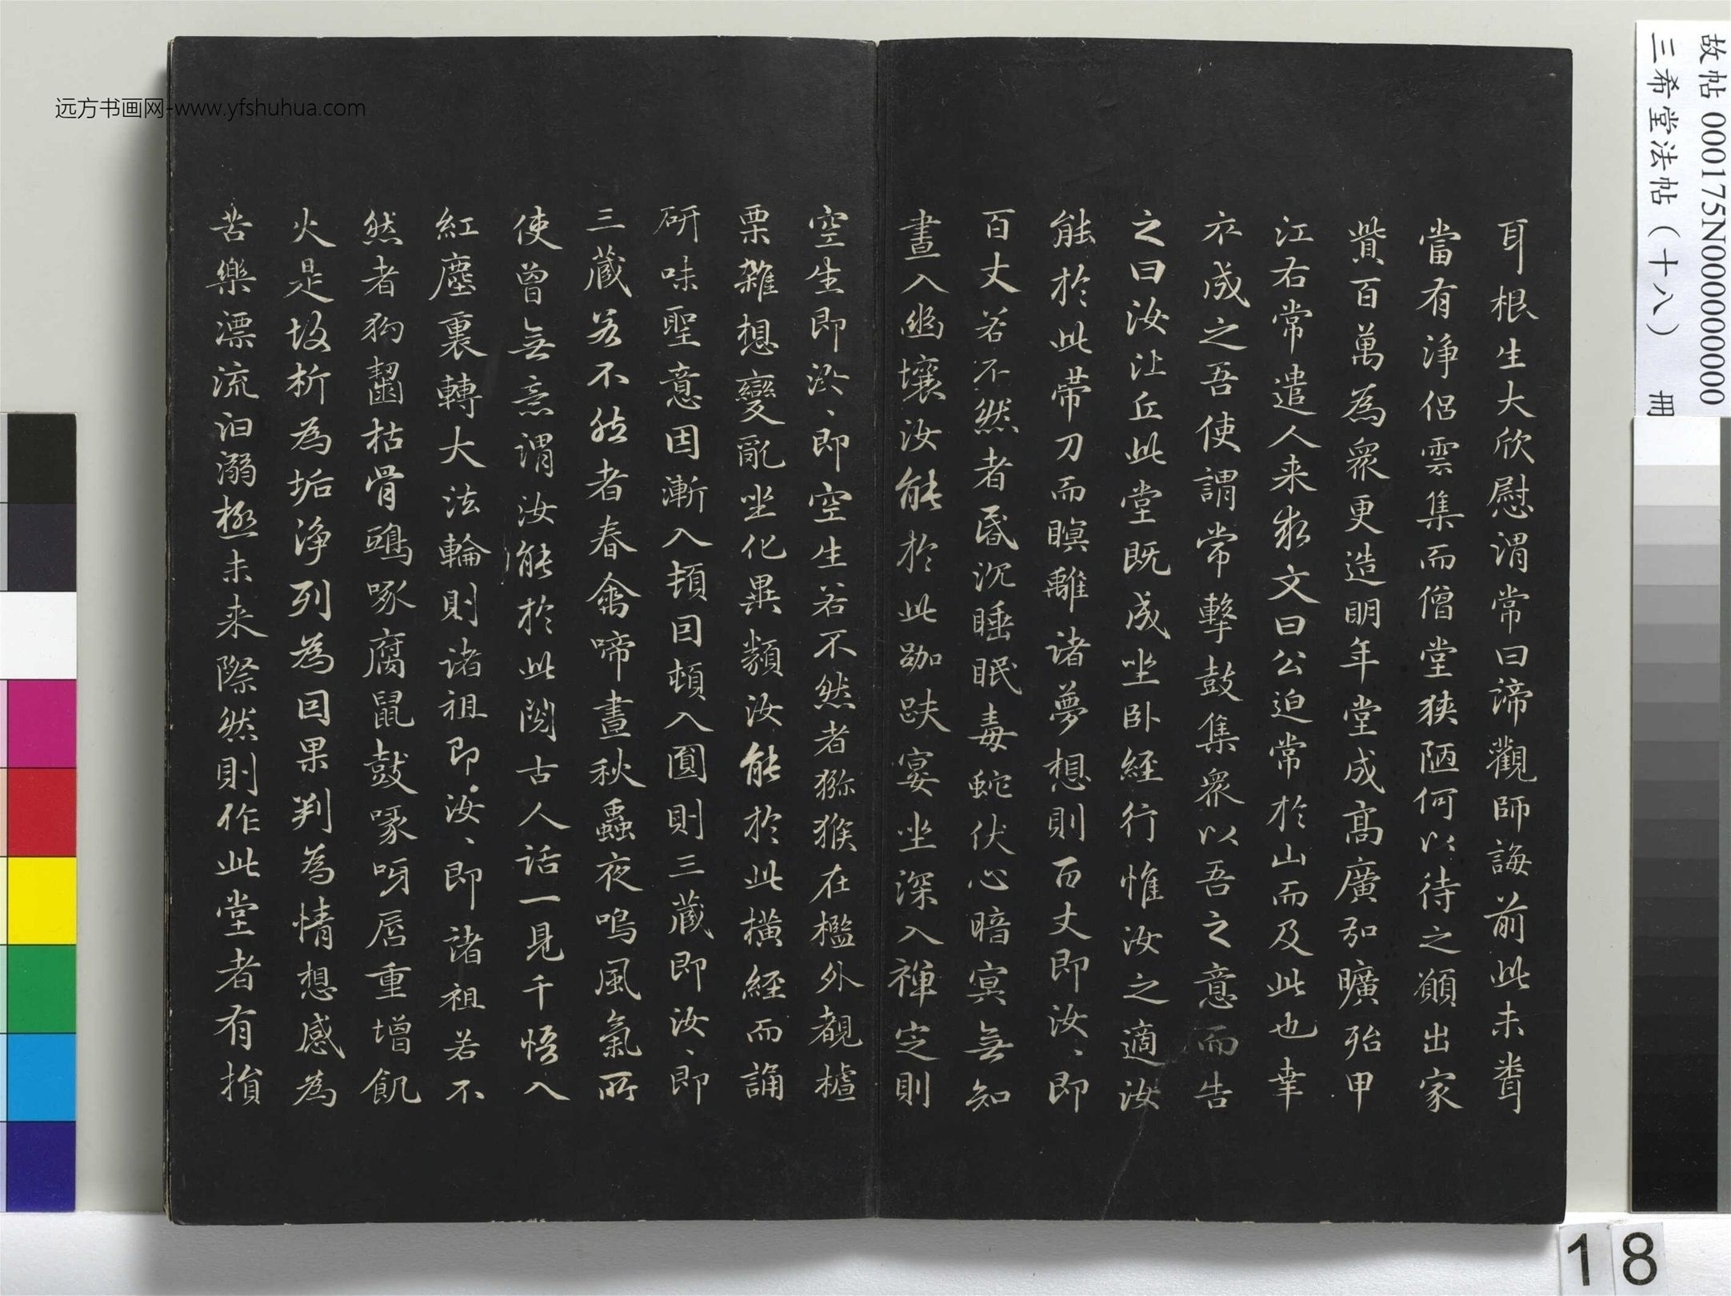 耳根生大欣慰謂常曰諦觀師誨前此未聞
當有淨侶雲集而僧堂狹陋何以待之願出家
貲百萬為眾更造明年堂成高廣加曠殆甲
江右常遣人来求文曰公迫常於山而及此也幸
衣成之吾使謂常擊鼓集眾以吾之意而告
之曰汝比丘此堂既成坐卧經行惟汝之適汝
能於此帶刀而瞑離諸夢想則百丈即汝、即
百丈若不然者昏沉睡眠毒蛇伏心暗冥無知
晝入幽壤汝能於此跏趺宴坐深入禪定則
空生即汝、即空生若不然者猕猴在檻外覩樝
栗雜想變亂坐化異類汝能於此橫經而誦
研味聖意因漸入頓因頓入圓則三藏即汝、即
三藏若不然者春禽啼晝秋蟲夜鳴風氣所
使曾無意謂汝能於此閱古人話一見千悟入
紅塵裏轉大法輪則諸祖即汝、即諸祖若不
然者狗齧枯骨鴟啄腐鼠鼓喙呀唇重增飢
火是故析為垢淨列為因果判為情想感為
苦樂漂流汩溺極未来際然則作此堂者有損
远方书画网-www.yfshuhua.com
故帖 000175N000000000
三希堂法帖（十八） 冊
18